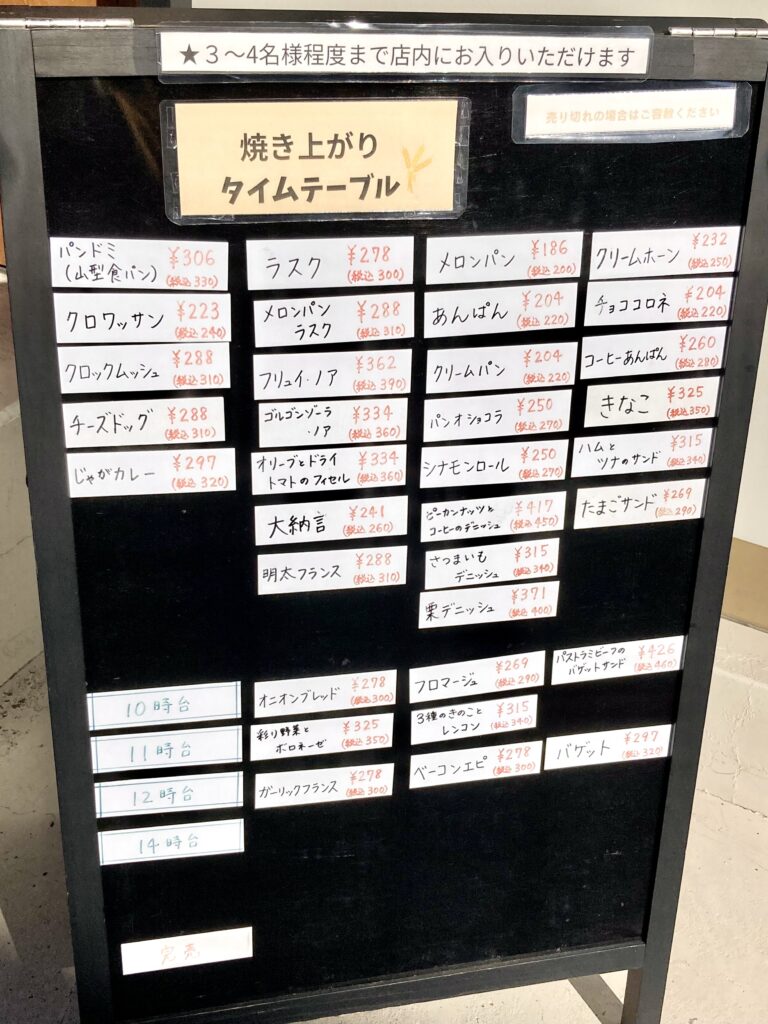 ★3〜4名様程度まで店内にお入りいただけます
売り切れの場合はご容赦ください
焼き上がり
タイムテーブル
パンドミ ¥306
(山型食パン) (税込 330)
クロワッサン ¥223
(税込 240)
クロックムッシュ ¥288
(税込 310)
チーズドッグ ¥288
(税込 310)
じゃがカレー ¥297
(税込 320)
ラスク ¥278
(税込 300)
メロンパン ¥288
ラスク (税込 310)
フリュイ・ノア ¥362
(税込 390)
ゴルゴンゾーラ ¥334
・ノア (税込 360)
オリーブとドライ ¥334
トマトのフィセル (税込 360)
大納言 ¥241
(税込 260)
明太フランス ¥288
(税込 310)
メロンパン ¥186
(税込 200)
あんぱん ¥204
(税込 220)
クリームパン ¥204
(税込 220)
パンオショコラ ¥250
(税込 270)
シナモンロール ¥250
(税込 270)
ピーカンナッツと ¥417
コーヒーのデニッシュ (税込 450)
さつまいも ¥315
デニッシュ (税込 340)
栗デニッシュ ¥371
(税込 400)
クリームホーン ¥232
(税込 250)
チョココロネ ¥204
(税込 220)
コーヒーあんぱん ¥260
(税込 280)
きなこ ¥325
(税込 350)
ハムと ¥315
ツナのサンド (税込 340)
たまごサンド ¥269
(税込 290)
10時台
11時台
12時台
14時台
オニオンブレッド ¥278
(税込 300)
彩り野菜と ¥325
ボロネーゼ (税込 350)
ガーリックフランス ¥278
(税込 300)
フロマージュ ¥269
(税込 290)
3種のきのこと ¥315
レンコン (税込 340)
ベーコンエピ ¥278
(税込 300)
パストラミビーフの ¥426
バゲットサンド (税込 460)
バゲット ¥297
(税込 320)
完売